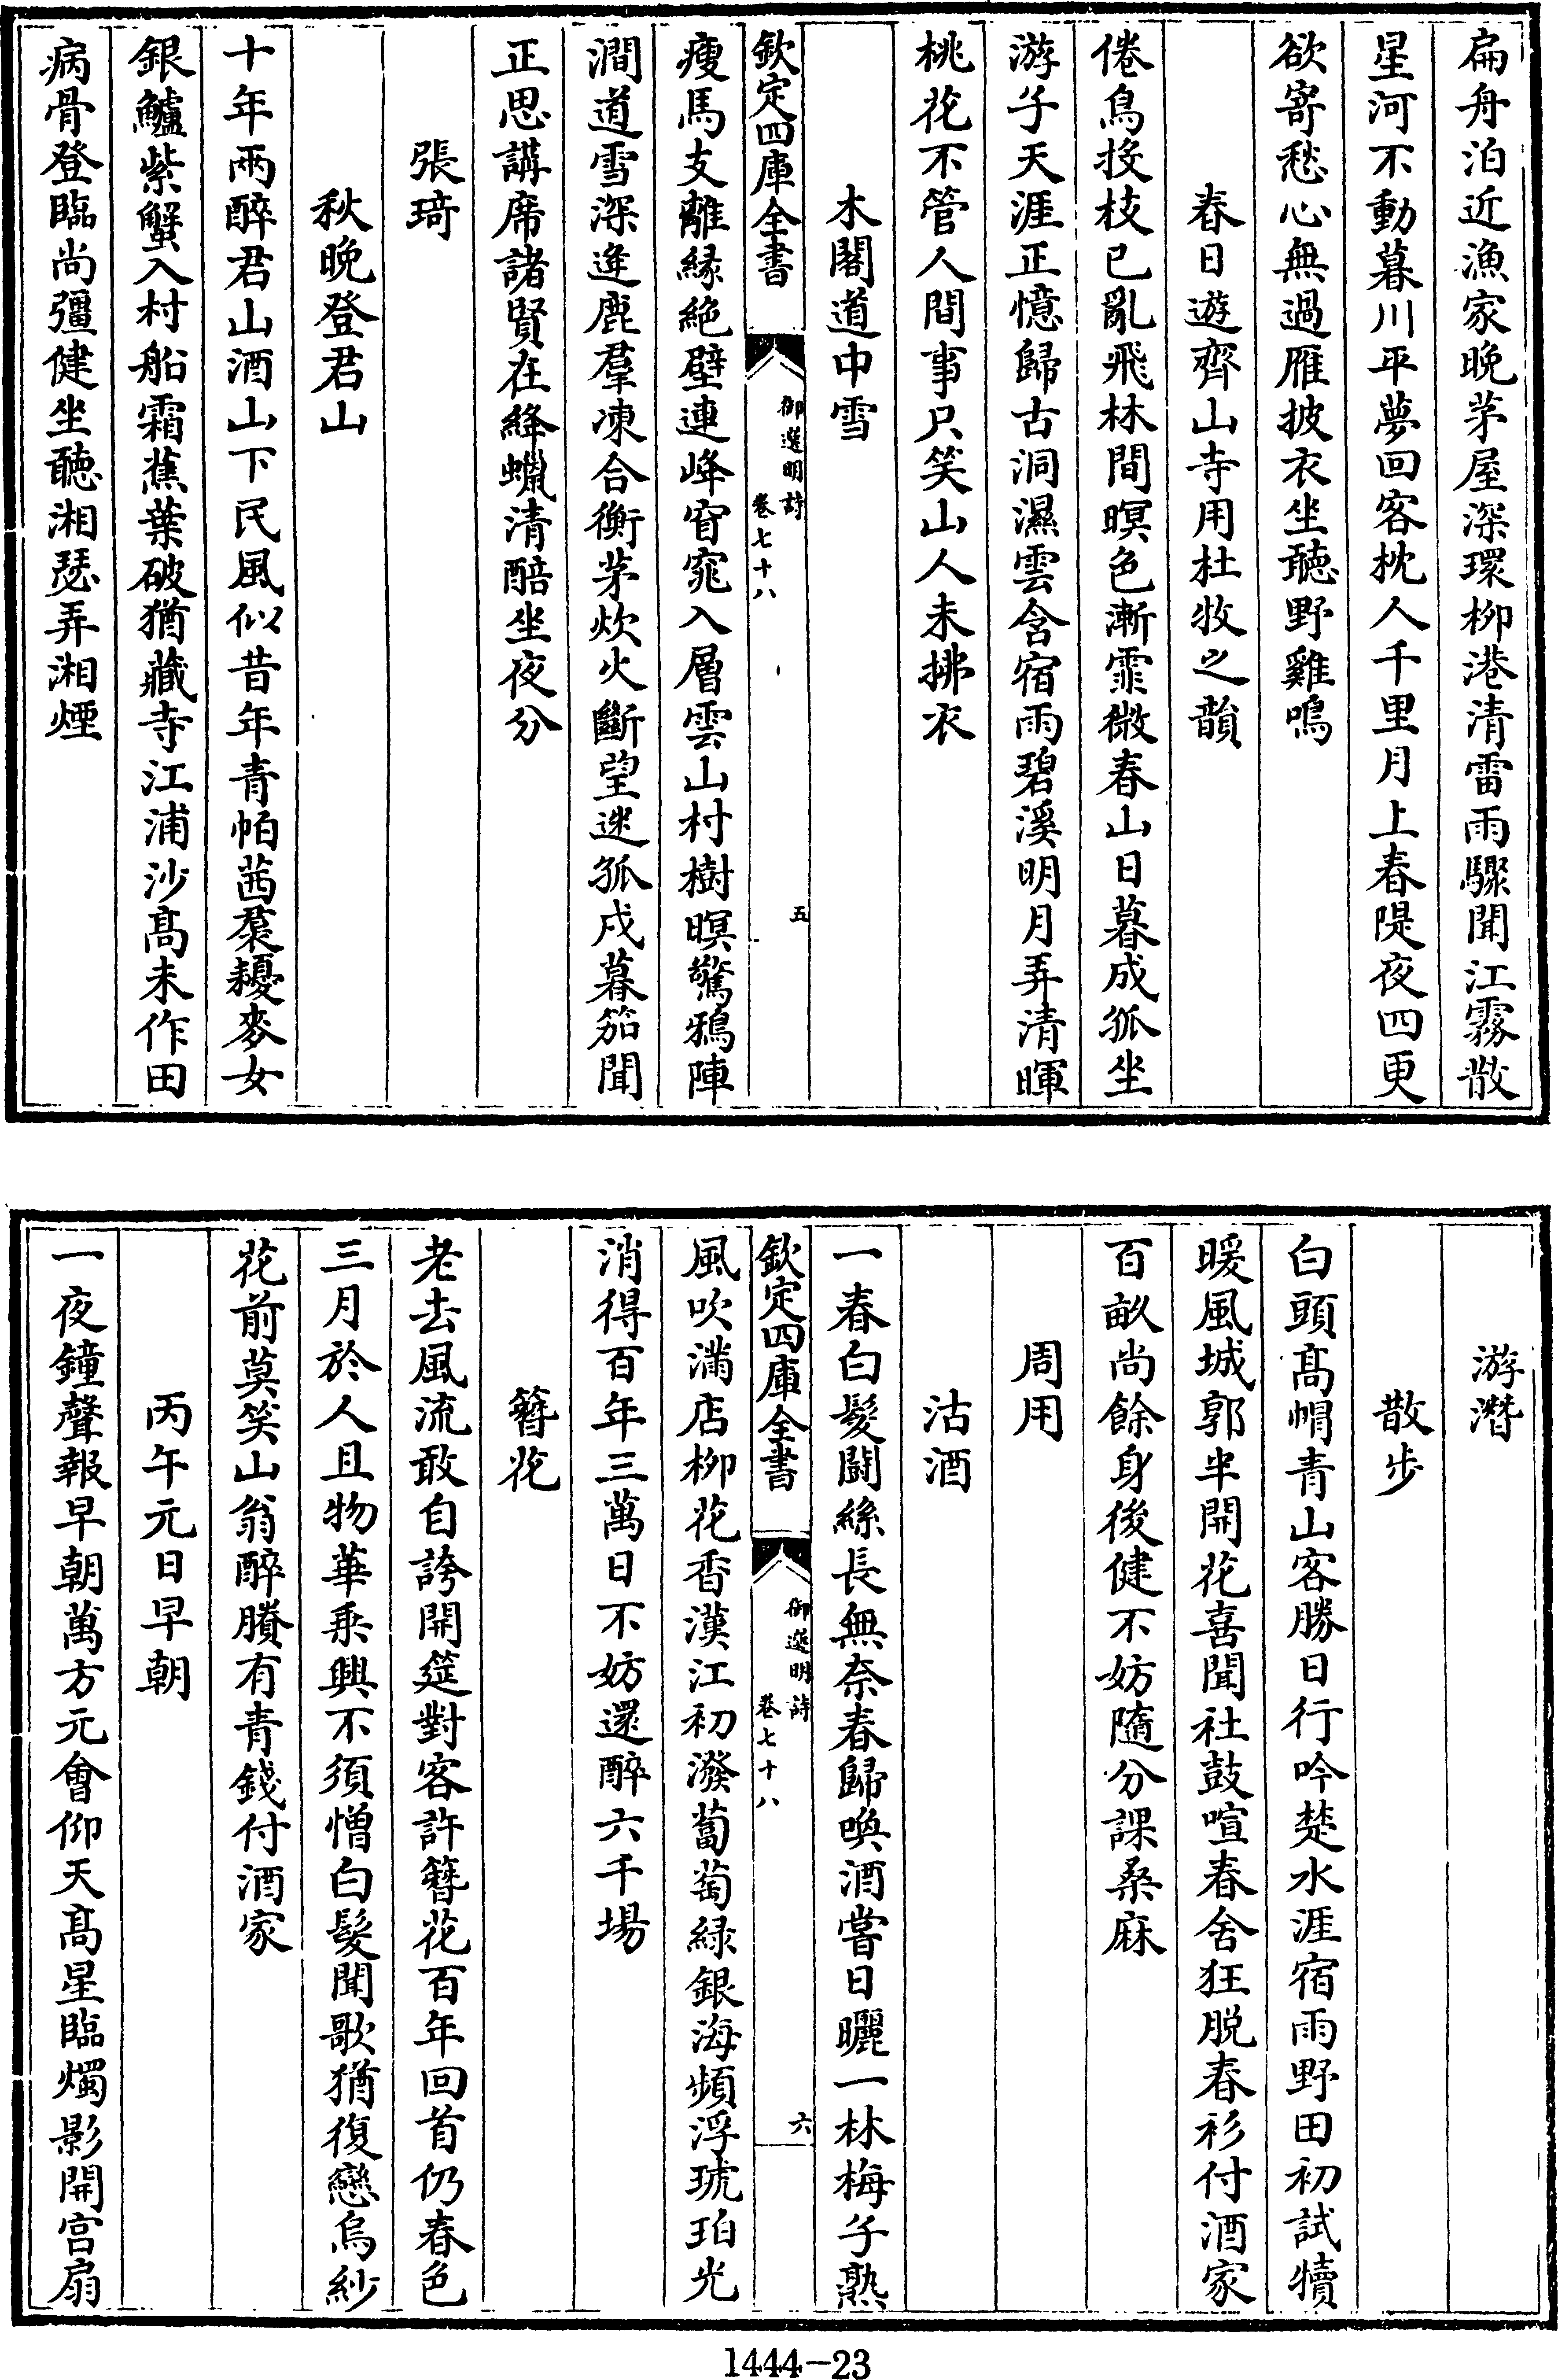 扁舟泊近漁家晚茅屋深環柳港清雷雨驟聞江霧散
星河不動暮川平夢回客枕人千里月上春隄夜四更
欲寄愁心無過雁披衣坐聽野雞鳴
春日遊齊山寺用杜牧之韻
倦鳥投枝已亂飛林間暝色漸霏微春山日暮成孤坐
游子天涯正憶歸古洞濕雲含宿雨碧溪明月弄清暉
桃花不管人間事只笑山人未拂衣
木閣道中雪
欽定四庫全書
御選明詩
卷七十八
五
瘦馬支離緣絶壁連峰窅窕入層雲山村樹暝驚鴉陣
澗道雪深逆鹿羣凍合衡茅炊火斷望迷孤戍暮笳聞
正思講席諸賢在絳蠟清醅坐夜分
張琦
秋晚登君山
十年兩醉君山酒山下民風似昔年青帕茜裠耰麥女
銀鱸紫蟹入村船霜蕉葉破猶藏寺江浦沙高未作田
病骨登臨尚彊健坐聽湘瑟弄湘煙
游濳
散步
白頭高帽青山客勝日行吟楚水涯宿雨野田初試犢
暖風城郭半開花喜聞社鼓喧春舍狂脱春衫付酒家
百畝尚餘身後健不妨隨分課桑麻
周用
沽酒
一春白髮鬭絲長無奈春歸喚酒嘗日曬一林梅子熟
欽定四庫全書
御選明詩
卷七十八
六
風吹滿店柳花香漢江初潑蔔萄緑銀海頻浮琥珀光
消得百年三萬日不妨還醉六千場
簪花
老去風流敢自誇開筵對客許簪花百年回首仍春色
三月於人且物華乘興不須憎白髮聞歌猶復戀烏紗
花前莫笑山翁醉賸有青錢付酒家
丙午元日早朝
一夜鐘聲報早朝萬方元會仰天高星臨燭影開宫扇
1444-23